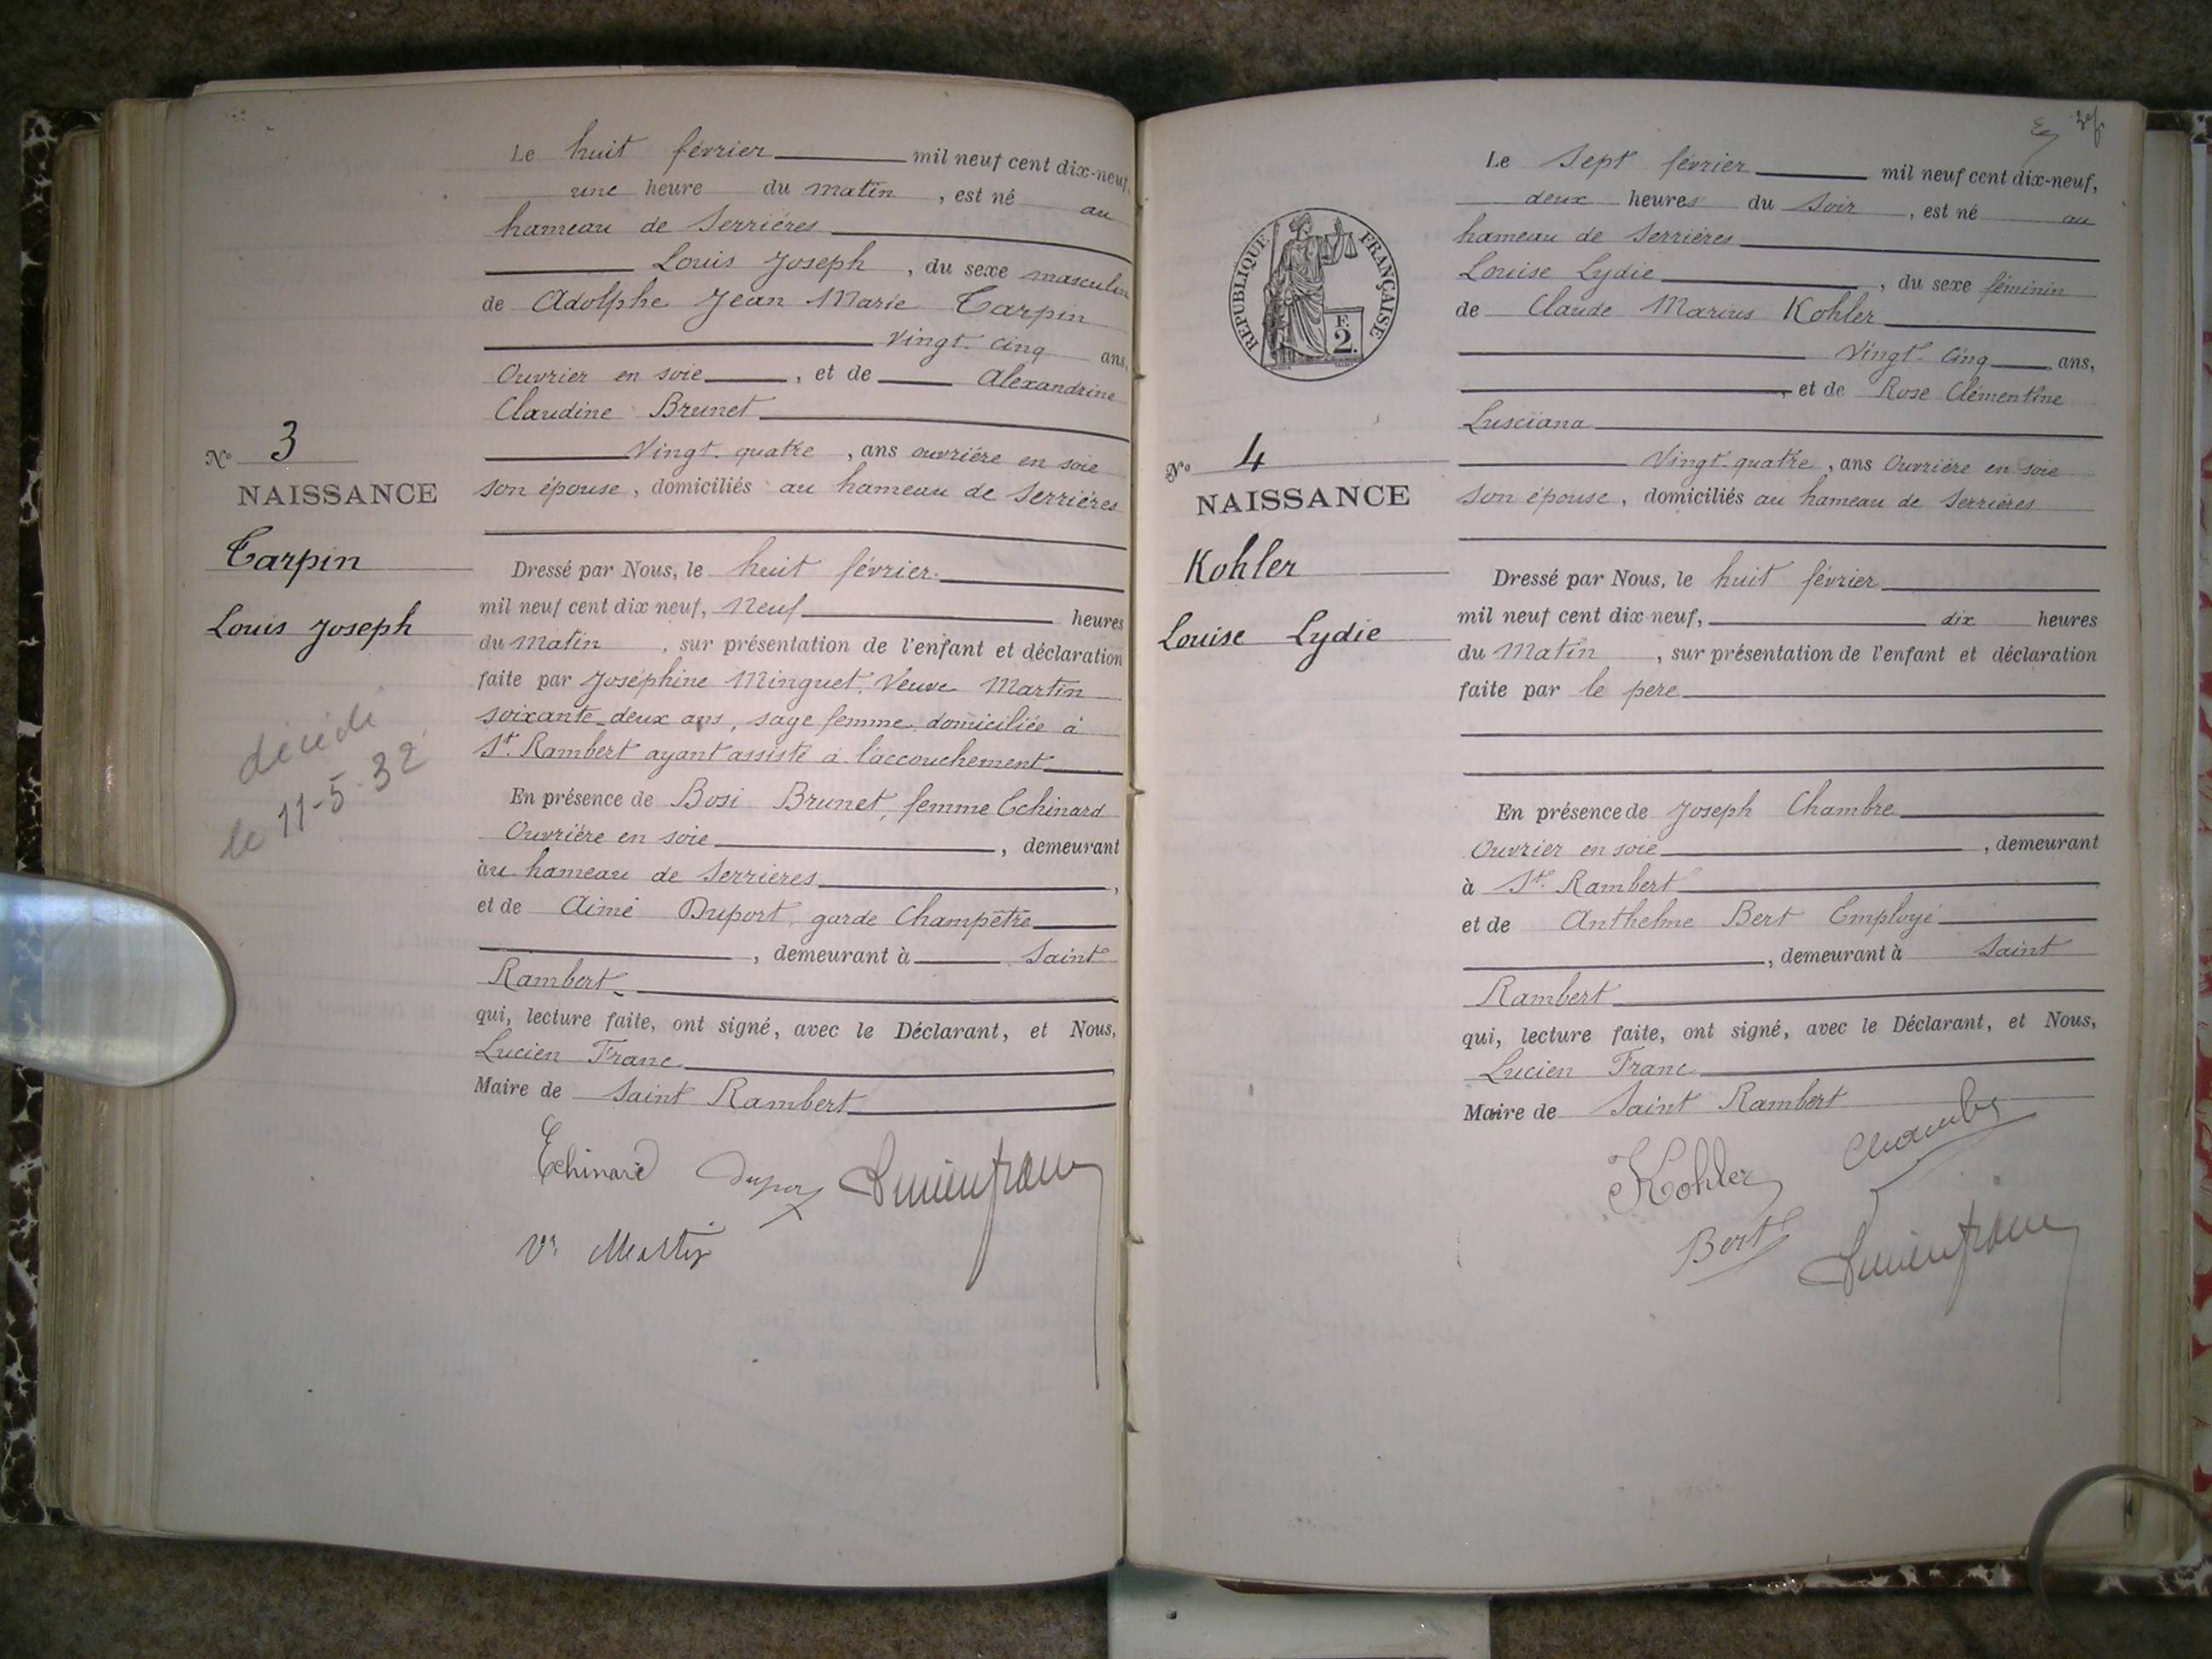 Le huit février mil neuf cent dix-neuf,
une heure du matin, est né au
hameau de Serrières
Louis Joseph, du sexe masculin
de Adolphe Jean Marie Tarpin
Vingt-cinq ans,
Ouvrier en soie, et de Alexandrine
Claudine Brunet
Vingt-quatre, ans ouvrière en soie
son épouse, domiciliés au hameau de Serrières
No 3
NAISSANCE
Tarpin
Louis Joseph
décédé
le 11-5-32
Dressé par Nous, le huit février
mil neuf cent dix neuf, Neuf heures
du Matin, sur présentation de l'enfant et déclaration
faite par Joséphine Minguet, Veuve Martin
soixante-deux ans, sage femme, domiciliée à
St. Rambert ayant assisté à l'accouchement
En présence de Bosi Brunet, femme Echinard
Ouvrière en soie, demeurant
au hameau de Serrières,
et de Aimé Duport, garde Champêtre
, demeurant à Saint
Rambert
qui, lecture faite, ont signé, avec le Déclarant, et Nous,
Lucien Franc
Maire de Saint Rambert
Echinard Duport Lucien Franc
Ve Martin
Le Sept février mil neuf cent dix-neuf,
deux heures du Soir, est né au
hameau de Serrières
Louise Lydie, du sexe féminin
de Claude Marius Kohler
Vingt-Cinq ans,
, et de Rose Clémentine
Lusciana
Vingt-quatre, ans Ouvrière en soie
Son épouse, domiciliés au hameau de Serrières
RÉPUBLIQUE FRANÇAISE
F.
2.
No 4
NAISSANCE
Kohler
Louise Lydie
Dressé par Nous, le huit février
mil neuf cent dix-neuf, dix heures
du Matin, sur présentation de l'enfant et déclaration
faite par le pere
En présence de Joseph Chambre
Ouvrier en soie, demeurant
à St. Rambert
et de Anthelme Bert Employé
, demeurant à Saint
Rambert
qui, lecture faite, ont signé, avec le Déclarant, et Nous,
Lucien Franc
Maire de Saint Rambert
Kohler Chambre
Bert Lucien Franc